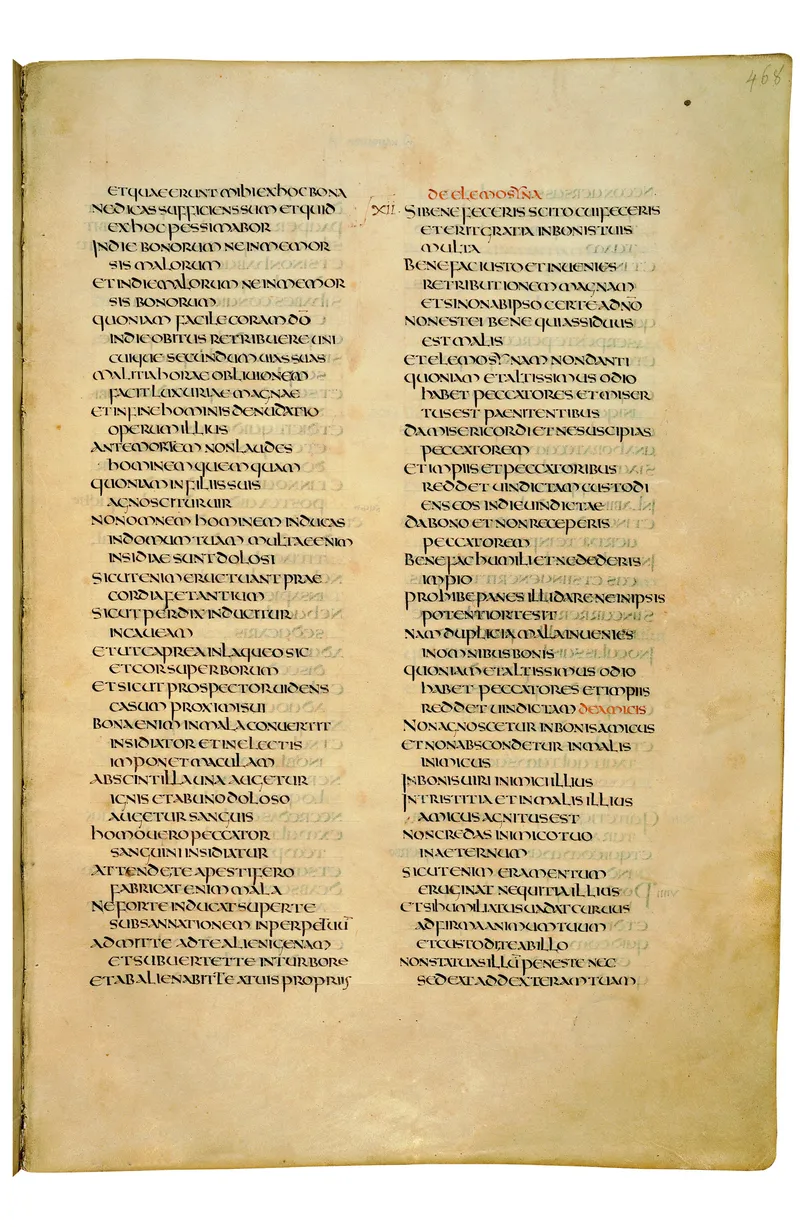 468
ETQUAEERUNT MIHIEXHOCBONA
NEDICASSUFFICIENSSUM ETQUID
EXHOC PESSIMABOR
INDIE BONORUM NEINMEMOR
SIS MALORUM
ETINDIEMALORUM NEINMEMOR
SIS BONORUM
QUONIAM FACILECORAMDO
INDIEOBITUS RETRIBUEREUNI
CUIQUE SECUNDUMUIASSUAS
MALITIAHORAE OBLIUIONEM
FACITLUXURIAE MAGNAE
ETINFINEHOMINISDENUDATIO
OPERUMILLIUS
ANTEMORTEM NONLAUDES
HOMINEM QUEM QUAM
QUONIAMINFILIISSUIS
AGNOSCITURUIR
NONOMNEM HOMINEM INDUCAS
INDOMUMTUAM MULTAEENIM
INSIDIAE SUNTDOLOSI
SICUTENIM ERUCTUANT PRAE
CORDIAFETANTIUM
SICUT PERDIXINDUCITUR
INCAUEAM
ETUTCAPREAINLAQUEOSIC
ETCORSUPERBORUM
ETSICUTPROSPECTORUIDENS
CASUM PROXIMISUI
BONAENIM INMALACONUERTIT
INSIDIATOR ETINELECTIS
IMPONETMACULAM
ABSCINTILLAUNA AUGETUR
IGNIS ETABUNODOLOSO
AUGETUR SANGUIS
HOMOUERO PECCATOR
SANGUINIINSIDIATUR
ATTENDETEAPESTIFERO
FABRICATENIMMALA
NEFORTE INDUCATSUPERTE
SUBSANNATIONEM INPERPETUU
ADMITTE ADTEALIENIGENAM
ETSUBUERTETTE INTURBORE
ETABALIENABITTEATUIS PROPRIIS
DE ELEMOSYNA
XII SIBENEFECERIS SCITOCUIFECERIS
ETERITGRATIA INBONISTUIS
MULTA
BENEFACIUSTOETINUENIES
RETRIBUTIONEM MAGNAM
ETSINONABIPSO CERTEADNO
NONESTEI BENE QUIASSIDUUS
ESTMALIS
ETELEMOSYNAM NONDANTI
QUONIAM ETALTISSIMUS ODIO
HABET PECCATORES ETMISER
TUSEST PAENITENTIBUS
DAMISERICORDIETNESUSCIPIAS
PECCATOREM
ETIMPIISETPECCATORIBUS
REDDET UINDICTAM CUSTODI
ENSEOS INDIEUINDICTAE
DABONO ETNONRECEPERIS
PECCATOREM
BENEFACHUMILIETNEDEDERIS
IMPIO
PROHIBEPANESILLIDARENEINIPSIS
POTENTIORTESIT
NAM DUPLICIAMALAINUENIES
INOMNIBUSBONIS
QUONIAMETALTISSIMUS ODIO
HABET PECCATORES ETIMPIIS
REDDET UINDICTAM DEAMICIS
NONAGNOSCETUR INBONISAMICUS
ETNONABSCONDETUR INMALIS
INIMICUS
INBONISUIRI INIMICIILLIUS
INTRISTITIA ETINMALIS ILLIUS
AMICUS AGNITUSEST
NONCREDAS INIMICOTUO
INAETERNUM
SICUTENIM ERAMENTUM
ERUGINAT NEQUITIAILLIUS
ETSIHUMILIATUSUADATCURUUS
ADFIRMAANIMUMTUUM
ETCUSTODITEABILLO
NONSTATUASILLU PENESTE NEC
SEDEATADDEXTERAMTUAM